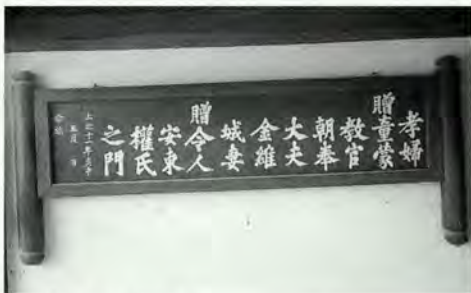 孝婦
贈童蒙
教官
朝奉
大夫
金維
城妻
贈令人
安東
權氏
之門
上之十一年
五月 日